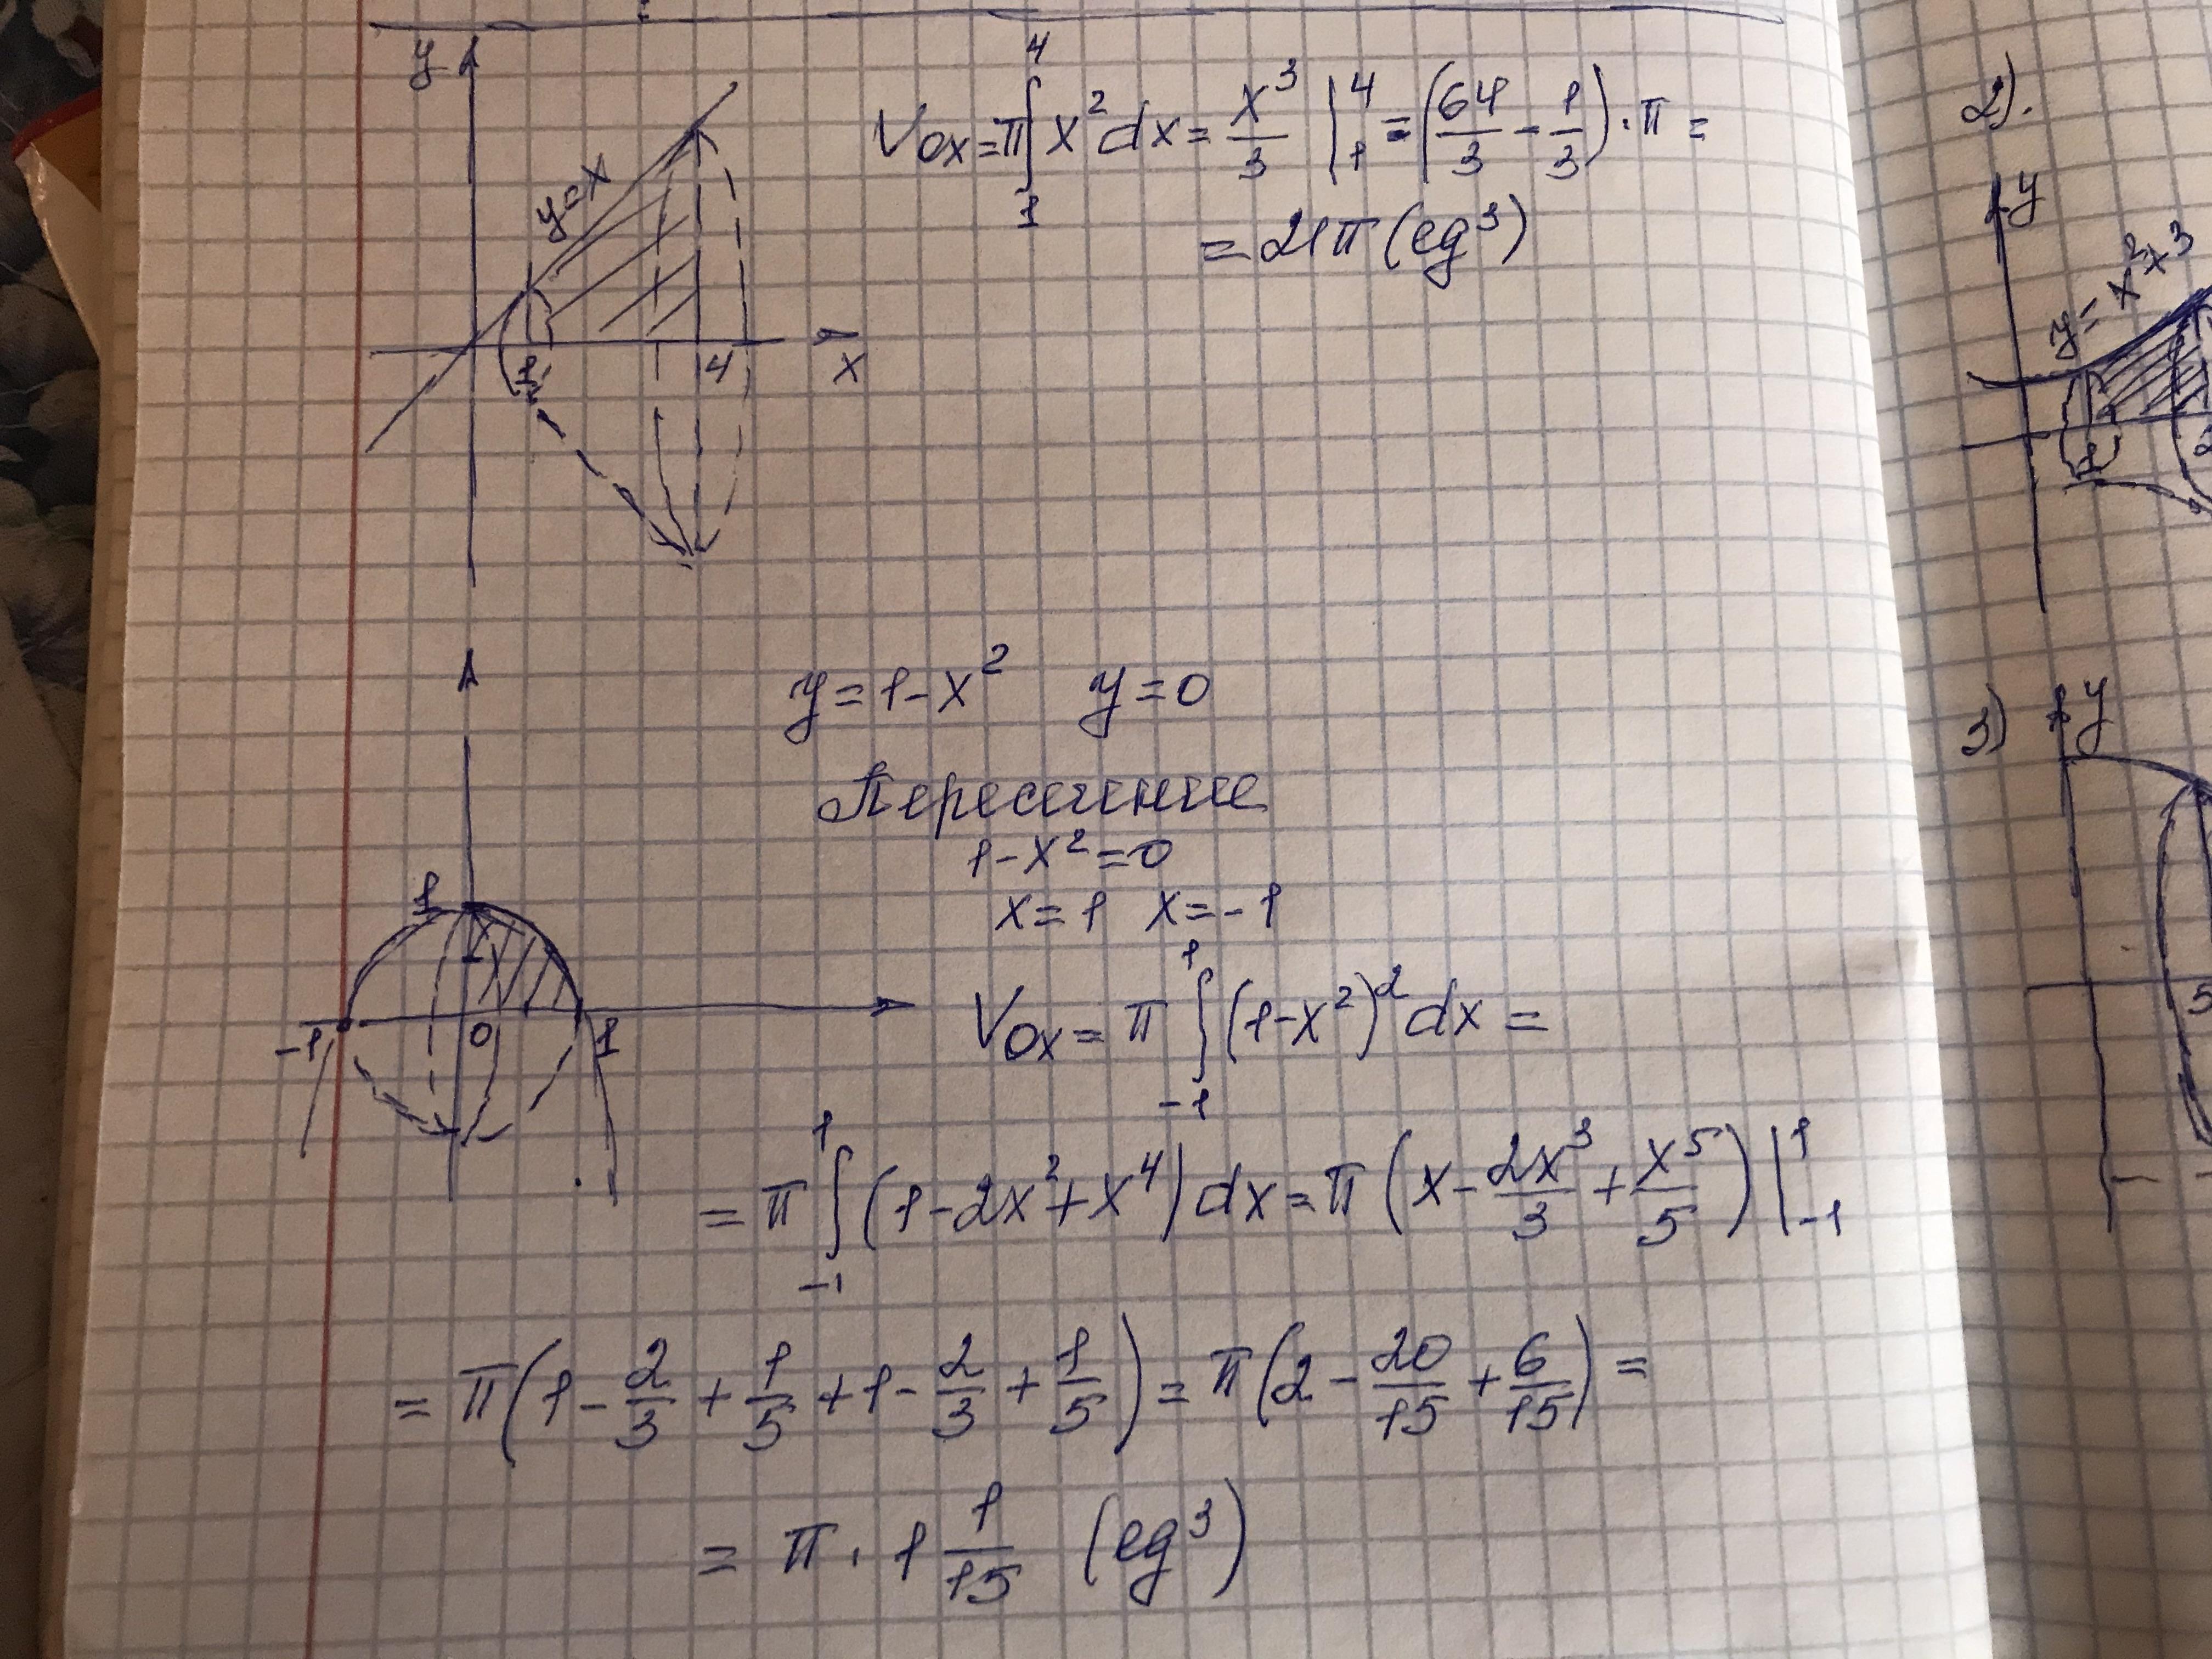 y
y=x
1
4
x
Vox=π∫₁⁴ x² dx = x³/3 |₁⁴ = (64/3 - 1/3)·π =
= 21π (ед³)
y=1-x² y=0
Пересечение
1-x²=0
x=1 x=-1
1
-1
0
1
Vox = π ∫₋₁¹ (1-x²)² dx =
= π ∫₋₁¹ (1-2x²+x⁴) dx = π (x - 2x³/3 + x⁵/5) |₋₁¹
= π(1 - 2/3 + 1/5 + 1 - 2/3 + 1/5) = π(2 - 20/15 + 6/15) =
= π · 1 1/15 (ед³)
2).
y
1
2
3)
y
5